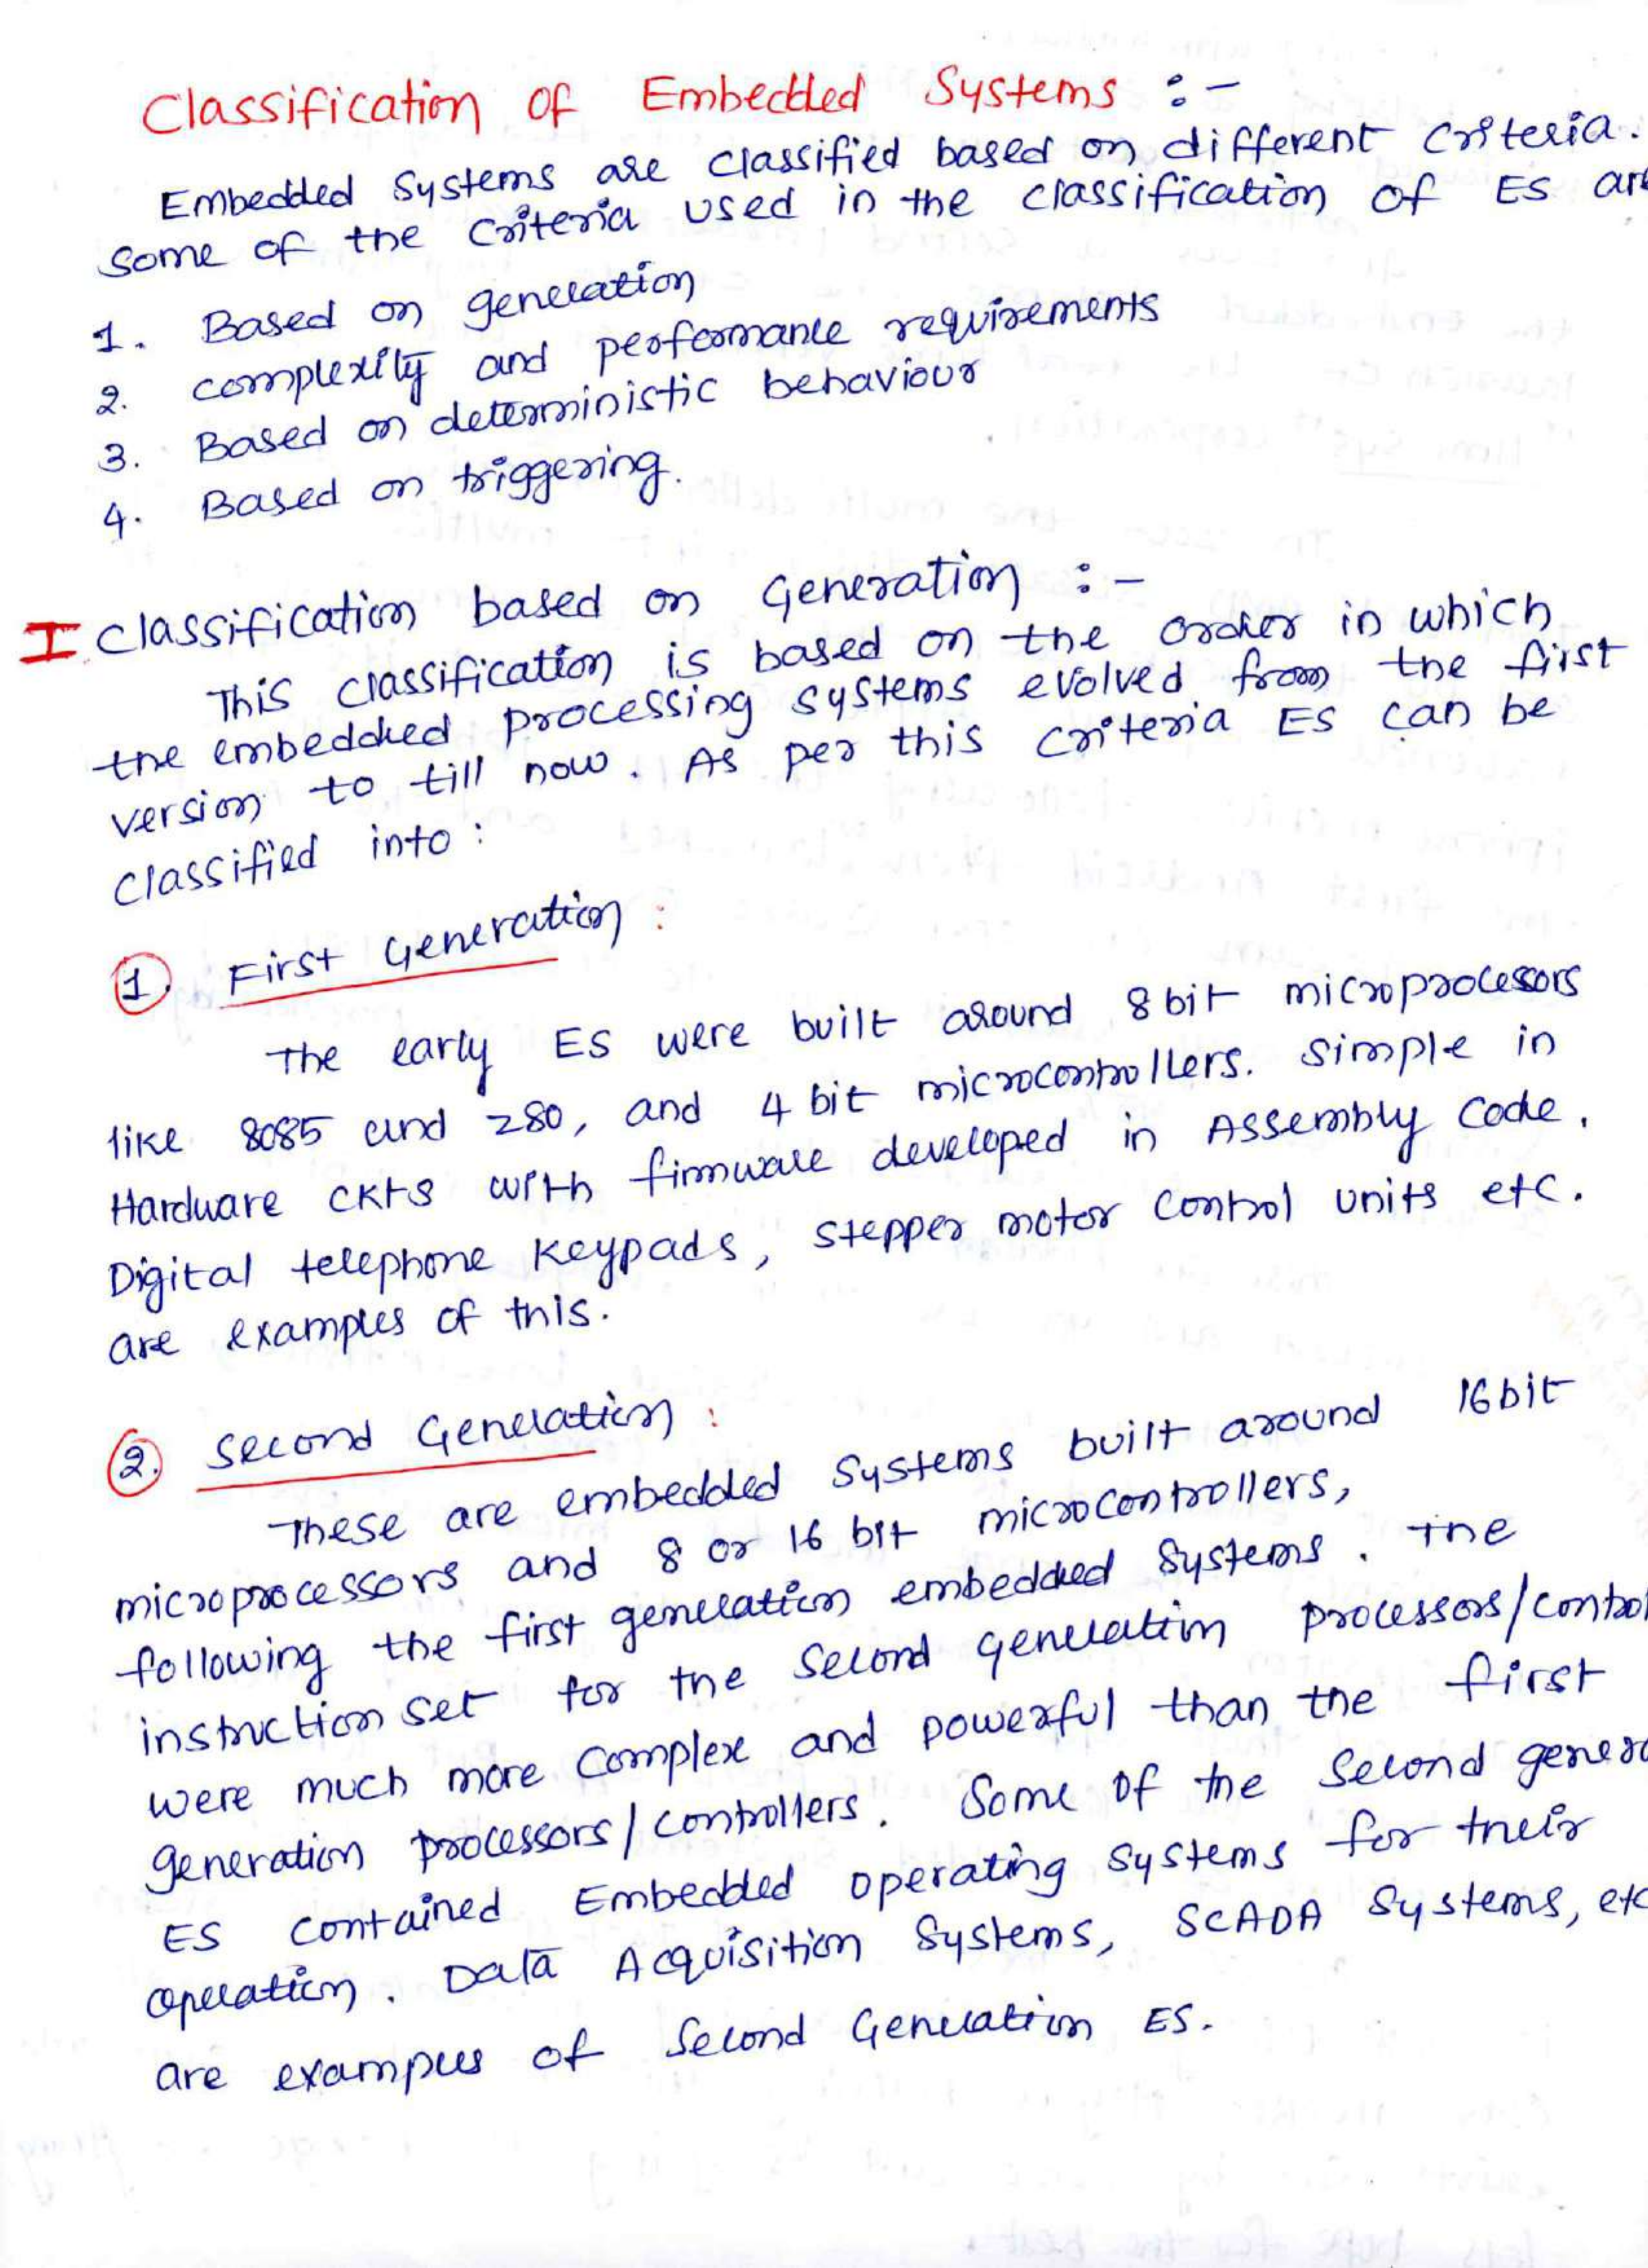 Classification of Embedded Systems :-
Embedded Systems are classified based on different criteria.
Some of the criteria used in the classification of ES are
1. Based on generation
2. complexity and performance requirements
3. Based on deterministic behaviour
4. Based on triggering.
I Classification based on Generation :-
This classification is based on the order in which
the embedded processing systems evolved from the first
version to till now. As per this criteria ES can be
classified into :
1. First Generation :
The early ES were built around 8 bit microprocessors
like 8085 and Z80, and 4 bit microcontrollers. Simple in
Hardware CKTS with firmware developed in Assembly Code.
Digital telephone keypads, stepper motor control units etc.
are examples of this.
2. Second Generation :
These are embedded systems built around 16 bit
microprocessors and 8 or 16 bit microcontrollers,
following the first generation embedded systems. The
instruction set for the second generation processors/control
were much more complex and powerful than the first
generation processors/controllers. Some of the second genera
ES contained Embedded operating systems for their
operation. Data Acquisition Systems, SCADA Systems, etc
are examples of Second Generation ES.